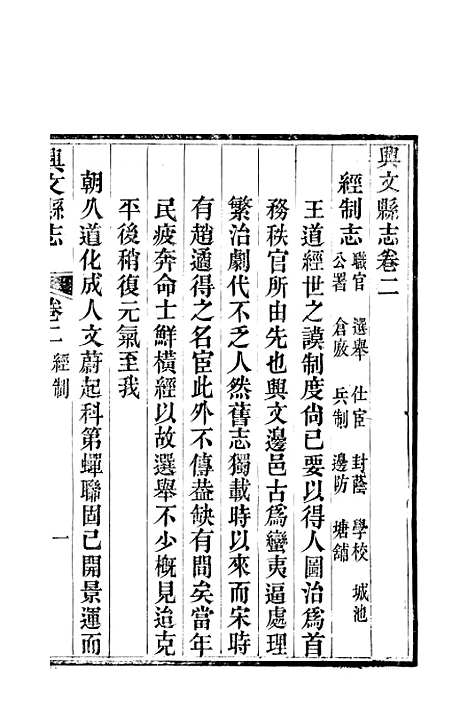 興文縣志卷二
經制志 職官 選舉 仕宦 封蔭 學校 城池
公署 倉廒 兵制 邊防 塘舖
王道經世之謨制度尙已要以得人圖治爲首
務秩官所由先也興文邊邑古爲蠻夷逼處理
繁治劇代不乏人然舊志獨載時以來而宋時
有趙遹得之名宦此外不傳葢缺有間矣當年
民疲奔命士鮮橫經以故選舉不少槪見迨克
平後稍復元氣至我
朝久道化成人文蔚起科第蟬聯固已開景運而
興文縣志 卷二 經制 一